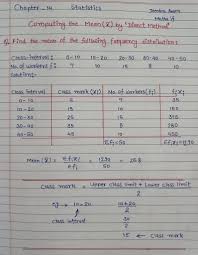 Chapter - 14 Statistics
Computing the Mean (x̄) by "Direct Method"
Q. Find the mean of the following frequency distribution:
Class-interval : 0-10 10-20 20-30 30-40 40-50
No. of workers fi : 7 10 15 8 10
Solution:-
Class Interval Class mark (xi) No. of workers (fi) fixi
0-10 5 7 35
10-20 15 10 150
20-30 25 15 375
30-40 35 8 280
40-50 45 10 450
Σfi=50 Σfixi=1290
Mean (x̄) = Σfixi / Σfi = 1290 / 50 = 25.8
Class mark = Upper class limit + Lower class limit / 2
eg → 10-20 10+20 / 2
class interval 30 / 2
15 ← Class mark